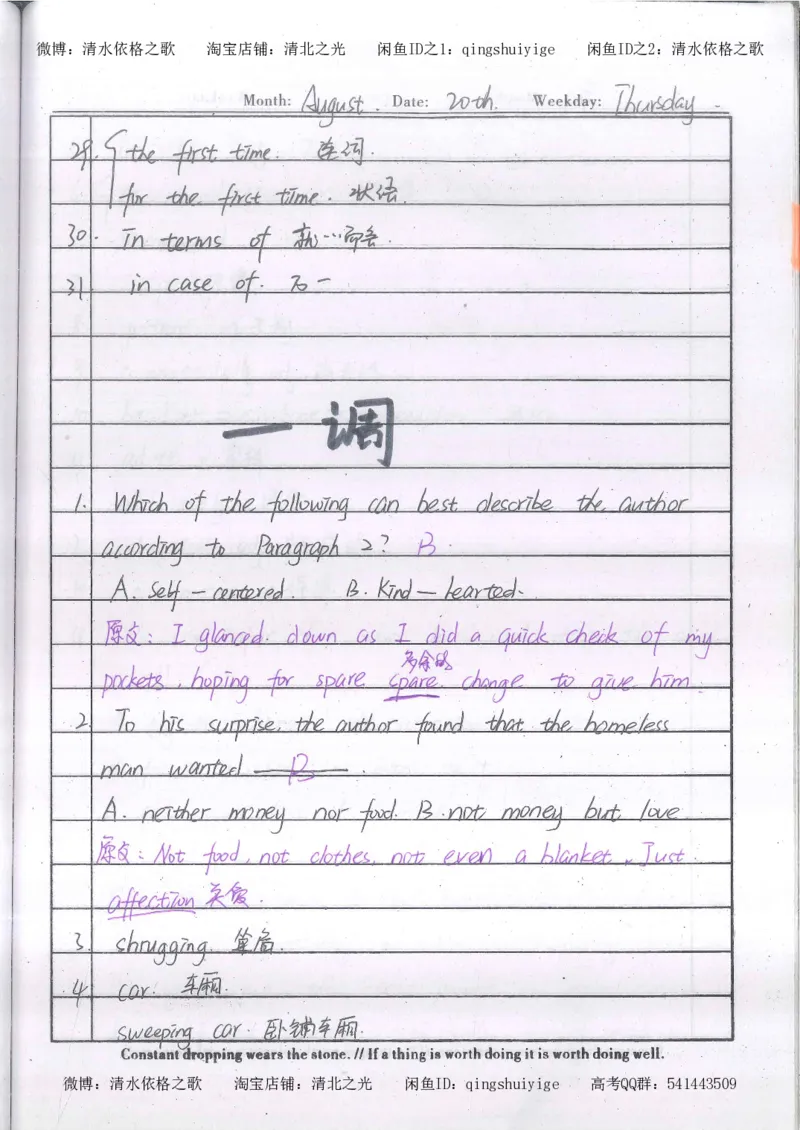 微博：清水依格之歌 淘宝店铺：清北之光 闲鱼ID之1：qingshuiyige 闲鱼ID之2：清水依格之歌
Month: August. Date: 20th. Weekday: Thursday
29. the first time. 连词.
for the first time. 状语.
30. In terms of 就…而言.
31. in case of. 万一
一调
1. Which of the following can best describe the author
according to Paragraph 2? B.
A. Self-centered. B. Kind-hearted.
原文: I glanced down as I did a quick check of my
多余的
pockets, hoping for spare spare change to give him.
2. To his surprise, the author found that the homeless
man wanted B.
A. neither money nor food. B. not money but love
原文: Not food, not clothes, not even a blanket. Just.
affection 关爱.
3. shrugging. 耸肩.
4. car. 车厢.
sweeping car. 卧铺车厢.
Constant dropping wears the stone. // If a thing is worth doing it is worth doing well.
微博：清水依格之歌 淘宝店铺：清北之光 闲鱼ID：qingshuiyige 高考QQ群：541443509